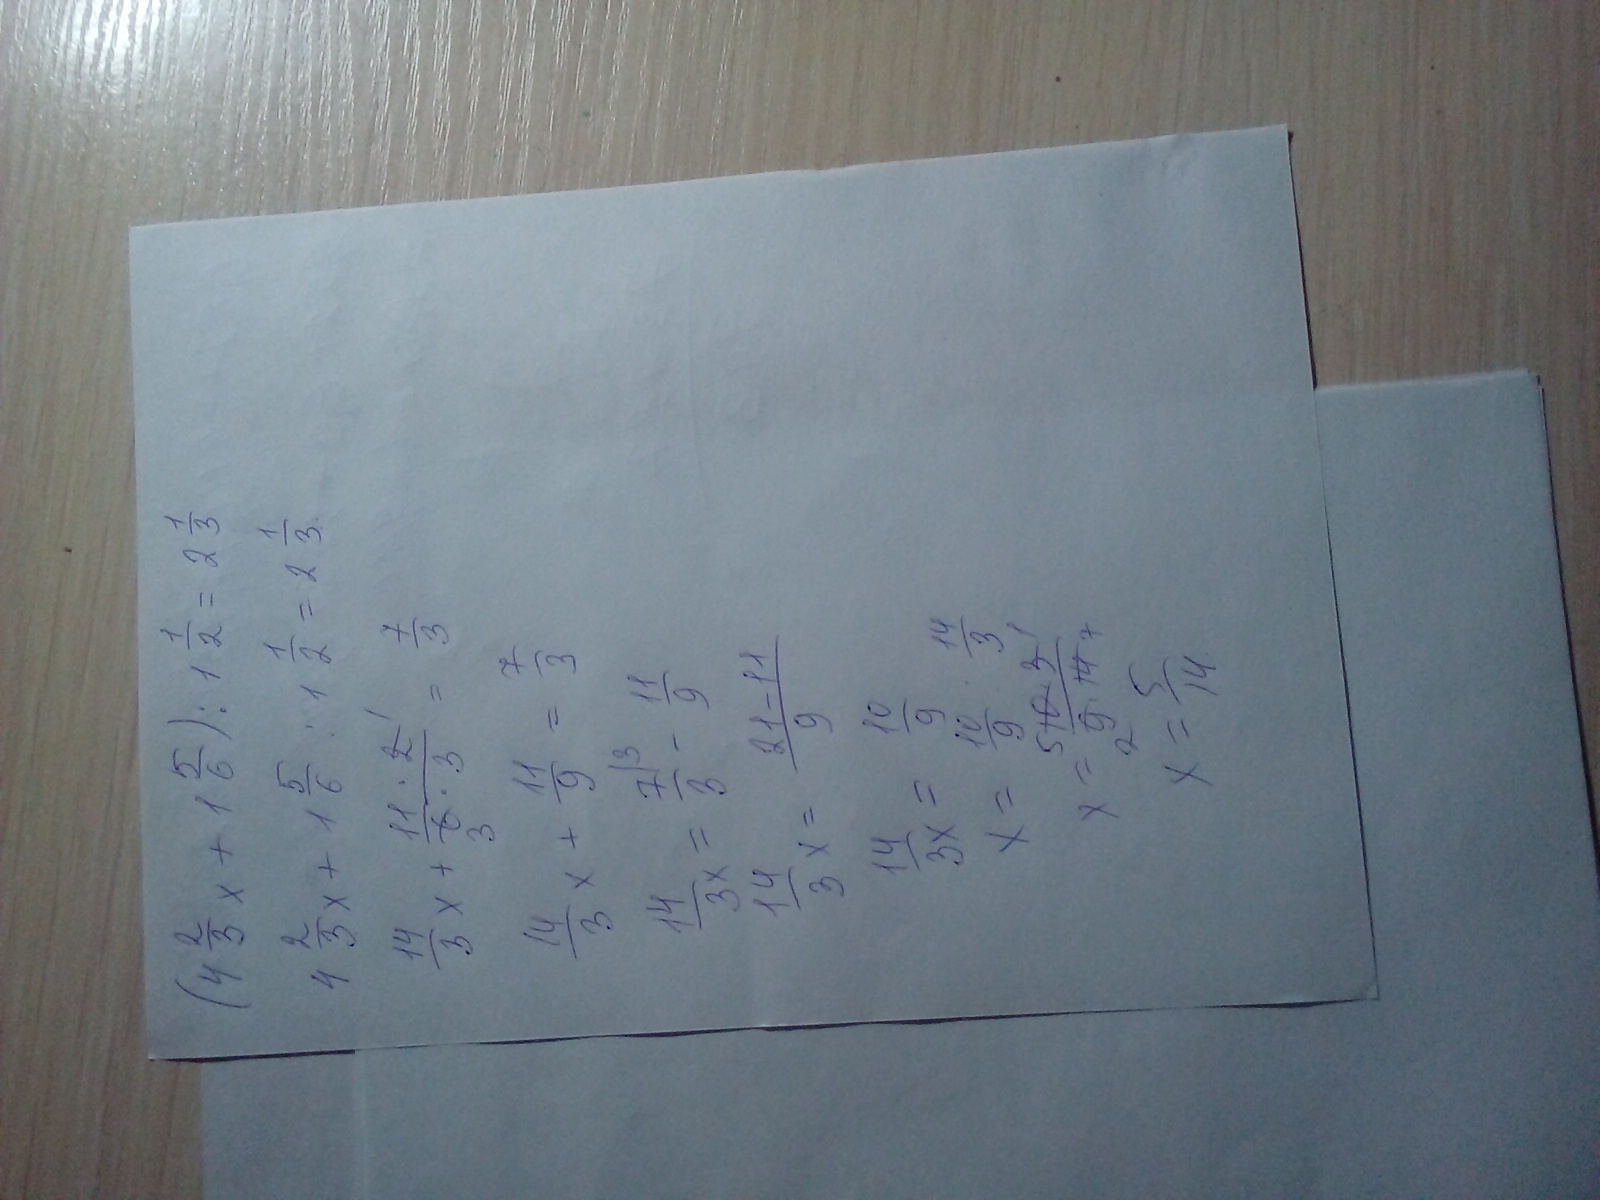 (4 2/3 x + 1 5/6) : 1 1/2 = 2 1/3
4 2/3 x + 1 5/6 : 1 1/2 = 2 1/3
14/3 x + 11 · 2 1/6 · 3 3 = 7/3
14/3 x + 11/9 = 7/3
14/3 x = 7 3/3 - 11/9
14/3 x = 21-11/9
14/3 x = 10/9
x = 10/9 14/3
x = 5 10 · 3 1/9 · 14 7 2
x = 5/14